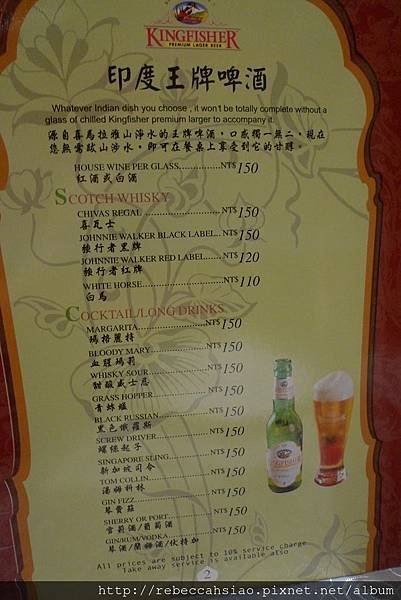 KINGFISHER
PREMIUM LAGER BEER
印度王牌啤酒
Whatever Indian dish you choose , it won't be totally complete without a
glass of chilled Kingfisher premium larger to accompany it.
源自喜馬拉雅山淨水的王牌啤酒，口感獨一無二，現在
您無需跋山涉水，即可在餐桌上享受到它的甘醇。
HOUSE WINE PER GLASS............NT$150
紅酒或白酒
SCOTCH WHISKY
CHIVAS REGAL ......................NT$150
喜瓦士
JOHNNIE WALKER BLACK LABEL...NT$150
約行者黑牌
JOHNNIE WALKER RED LABEL.......NT$120
約行者紅牌
WHITE HORSE........................NT$110
白馬
COCKTAIL/LONG DRINKS
MARGARITA........................NT$150
瑪格麗特
BLOODY MARY.....................NT$150
血腥瑪莉
WHISKY SOUR.....................NT$150
甜酸威士忌
GRASS HOPPER....................NT$150
青蚱蜢
BLACK RUSSIAN...................NT$150
黑色俄羅斯
SCREW DRIVER....................NT$150
螺絲起子
SINGAPORE SLING.................NT$150
新加坡司令
TOM COLLIN......................NT$150
湯姆科林
GIN FIZZ........................NT$150
琴費茲
SHERRY OR PORT..................NT$150
雪莉酒/葡萄酒
GIN/RUM/VODKA...................NT$150
琴酒/蘭姆酒/伏特加
All prices are subject to 10% service charge
Take away service is available also
2
KINGFISHER
http://rebeccahsiao.pixnet.net/album